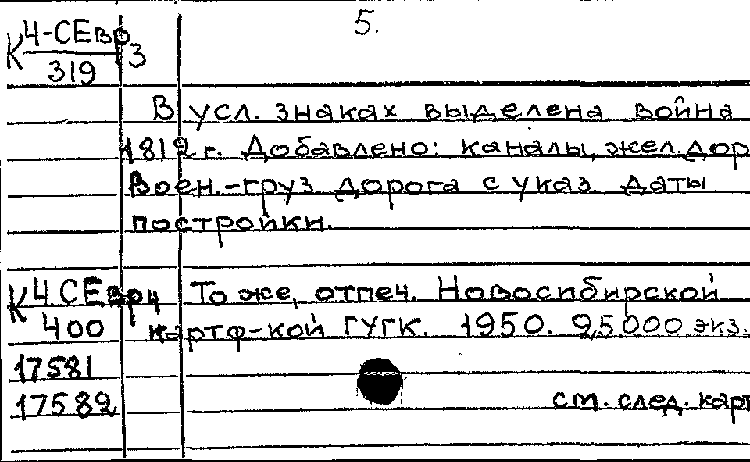 5.
К 4-СЕвр 13
319
В усл. знаках выделена война
1812 г. Добавлено: каналы, жел. дор
Воен.-груз. дорога с указ. даты
постройки.
К 4 СЕвр 14 То же, отпеч. Новосибирской
400 картф-кой ГУГК. 1950. 25.000 экз.
17581
17582 см. след. карт